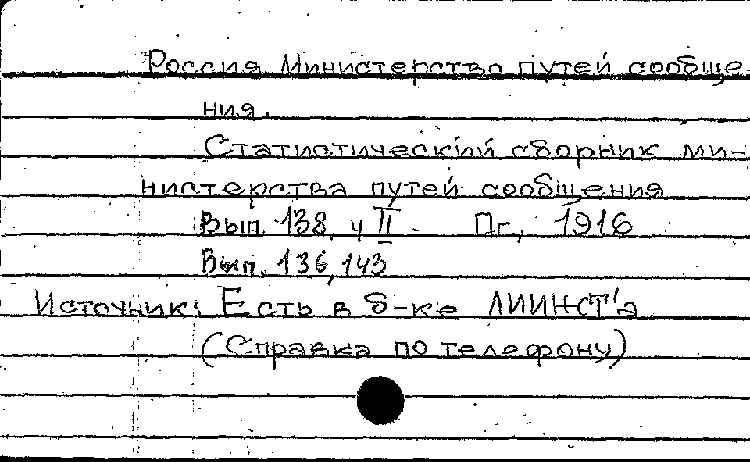 Россия Министерство путей сообще-
ния.
Статистический сборник ми-
нистерства путей сообщения
Вып. 138, ч II. Пг., 1916
Вып. 136, 143
Источник: Есть в б-ке ЛИИЖТ'а
(Справка по телефону)